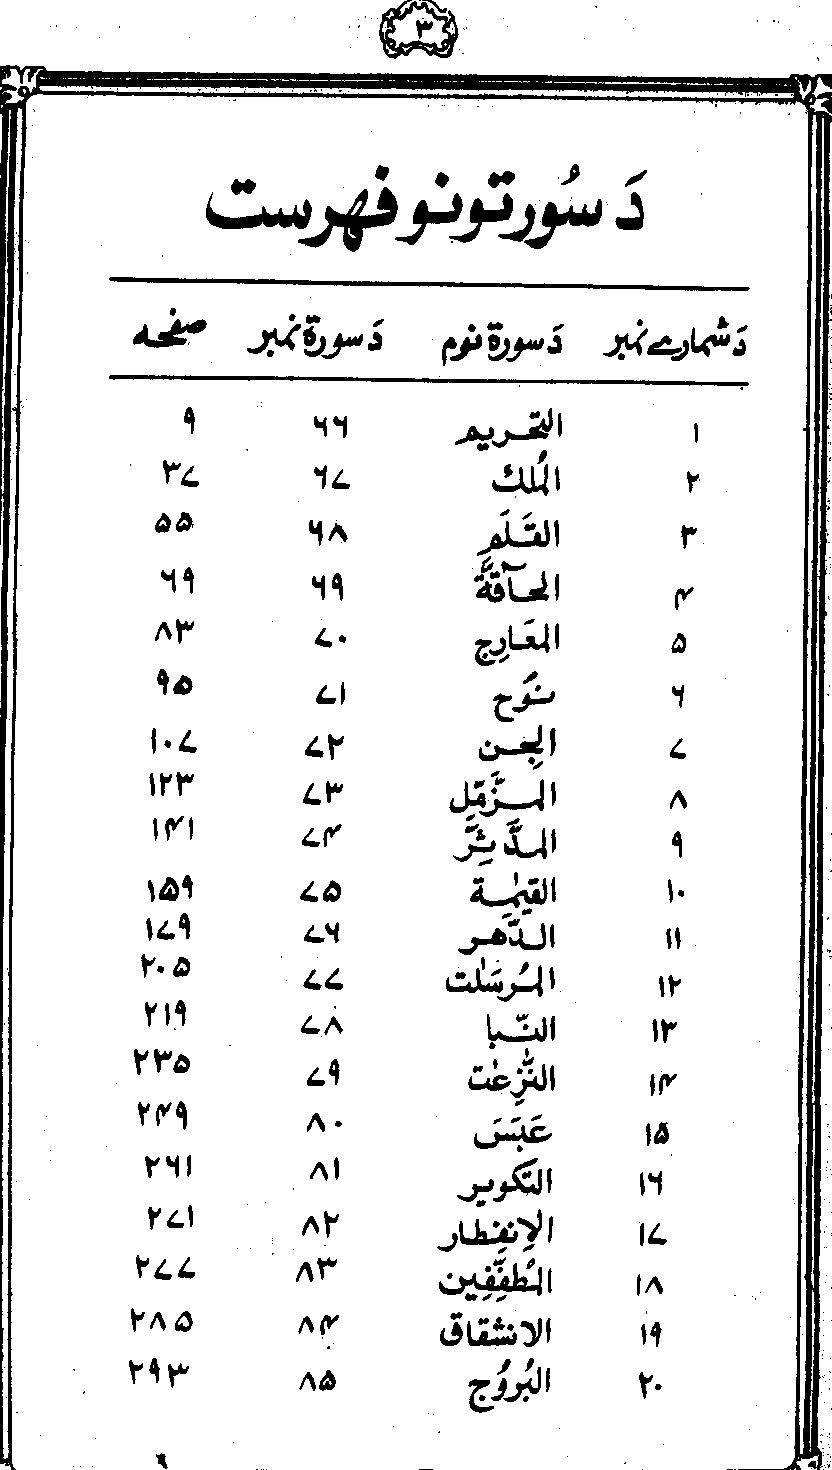 ۳
دَ سُورتونو فهرست
دَ شمارے نمبر دَ سورة نوم دَ سورة نمبر صفحہ
۱ التحریم ۶۶ ۹
۲ المُلك ۶۷ ۳۷
۳ القَلَم ۶۸ ۵۵
۴ الحآقَّة ۶۹ ۶۹
۵ المعَارِج ۷۰ ۸۳
۶ نُوَح ۷۱ ۹۵
۷ الجِن ۷۲ ۱۰۷
۸ المزَّمِّل ۷۳ ۱۲۳
۹ المدَّثِّر ۷۴ ۱۴۱
۱۰ القیٰمة ۷۵ ۱۵۹
۱۱ الدَّهر ۷۶ ۱۷۹
۱۲ المُرسَلٰت ۷۷ ۲۰۵
۱۳ النَّبا ۷۸ ۲۱۹
۱۴ النّٰزِعٰت ۷۹ ۲۳۵
۱۵ عَبَسَ ۸۰ ۲۴۹
۱۶ التَکویر ۸۱ ۲۶۱
۱۷ الاِنفِطار ۸۲ ۲۷۱
۱۸ المُطَفِّفِین ۸۳ ۲۷۷
۱۹ الانشقاق ۸۴ ۲۸۵
۲۰ البُروُج ۸۵ ۲۹۳